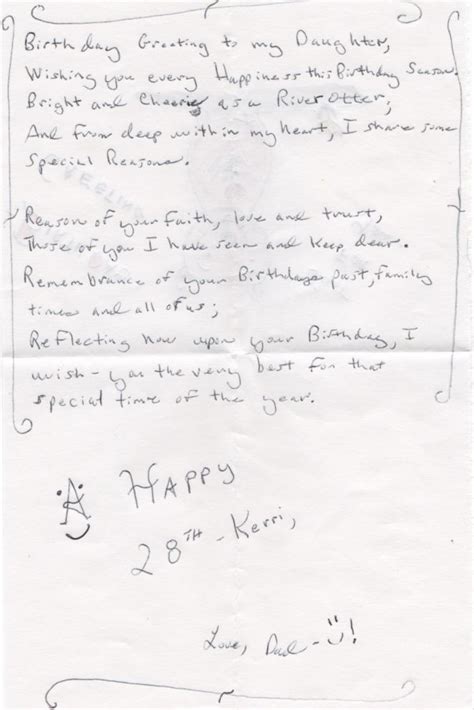 Birthday Greeting to my Daughter,
Wishing you every Happiness this Birthday Season.
Bright and Cheerie as a River Otter,
And from deep within my heart, I share some
Special Reasons.
Reason of your faith, love and trust,
Those of you I have seen and keep dear.
Remembrance of your Birthdays past, family
times and all of us;
Reflecting now upon your Birthday, I
wish - you the very best for that
special time of the year.
A HAPPY
28TH - Kerri,
Love, Dad - !